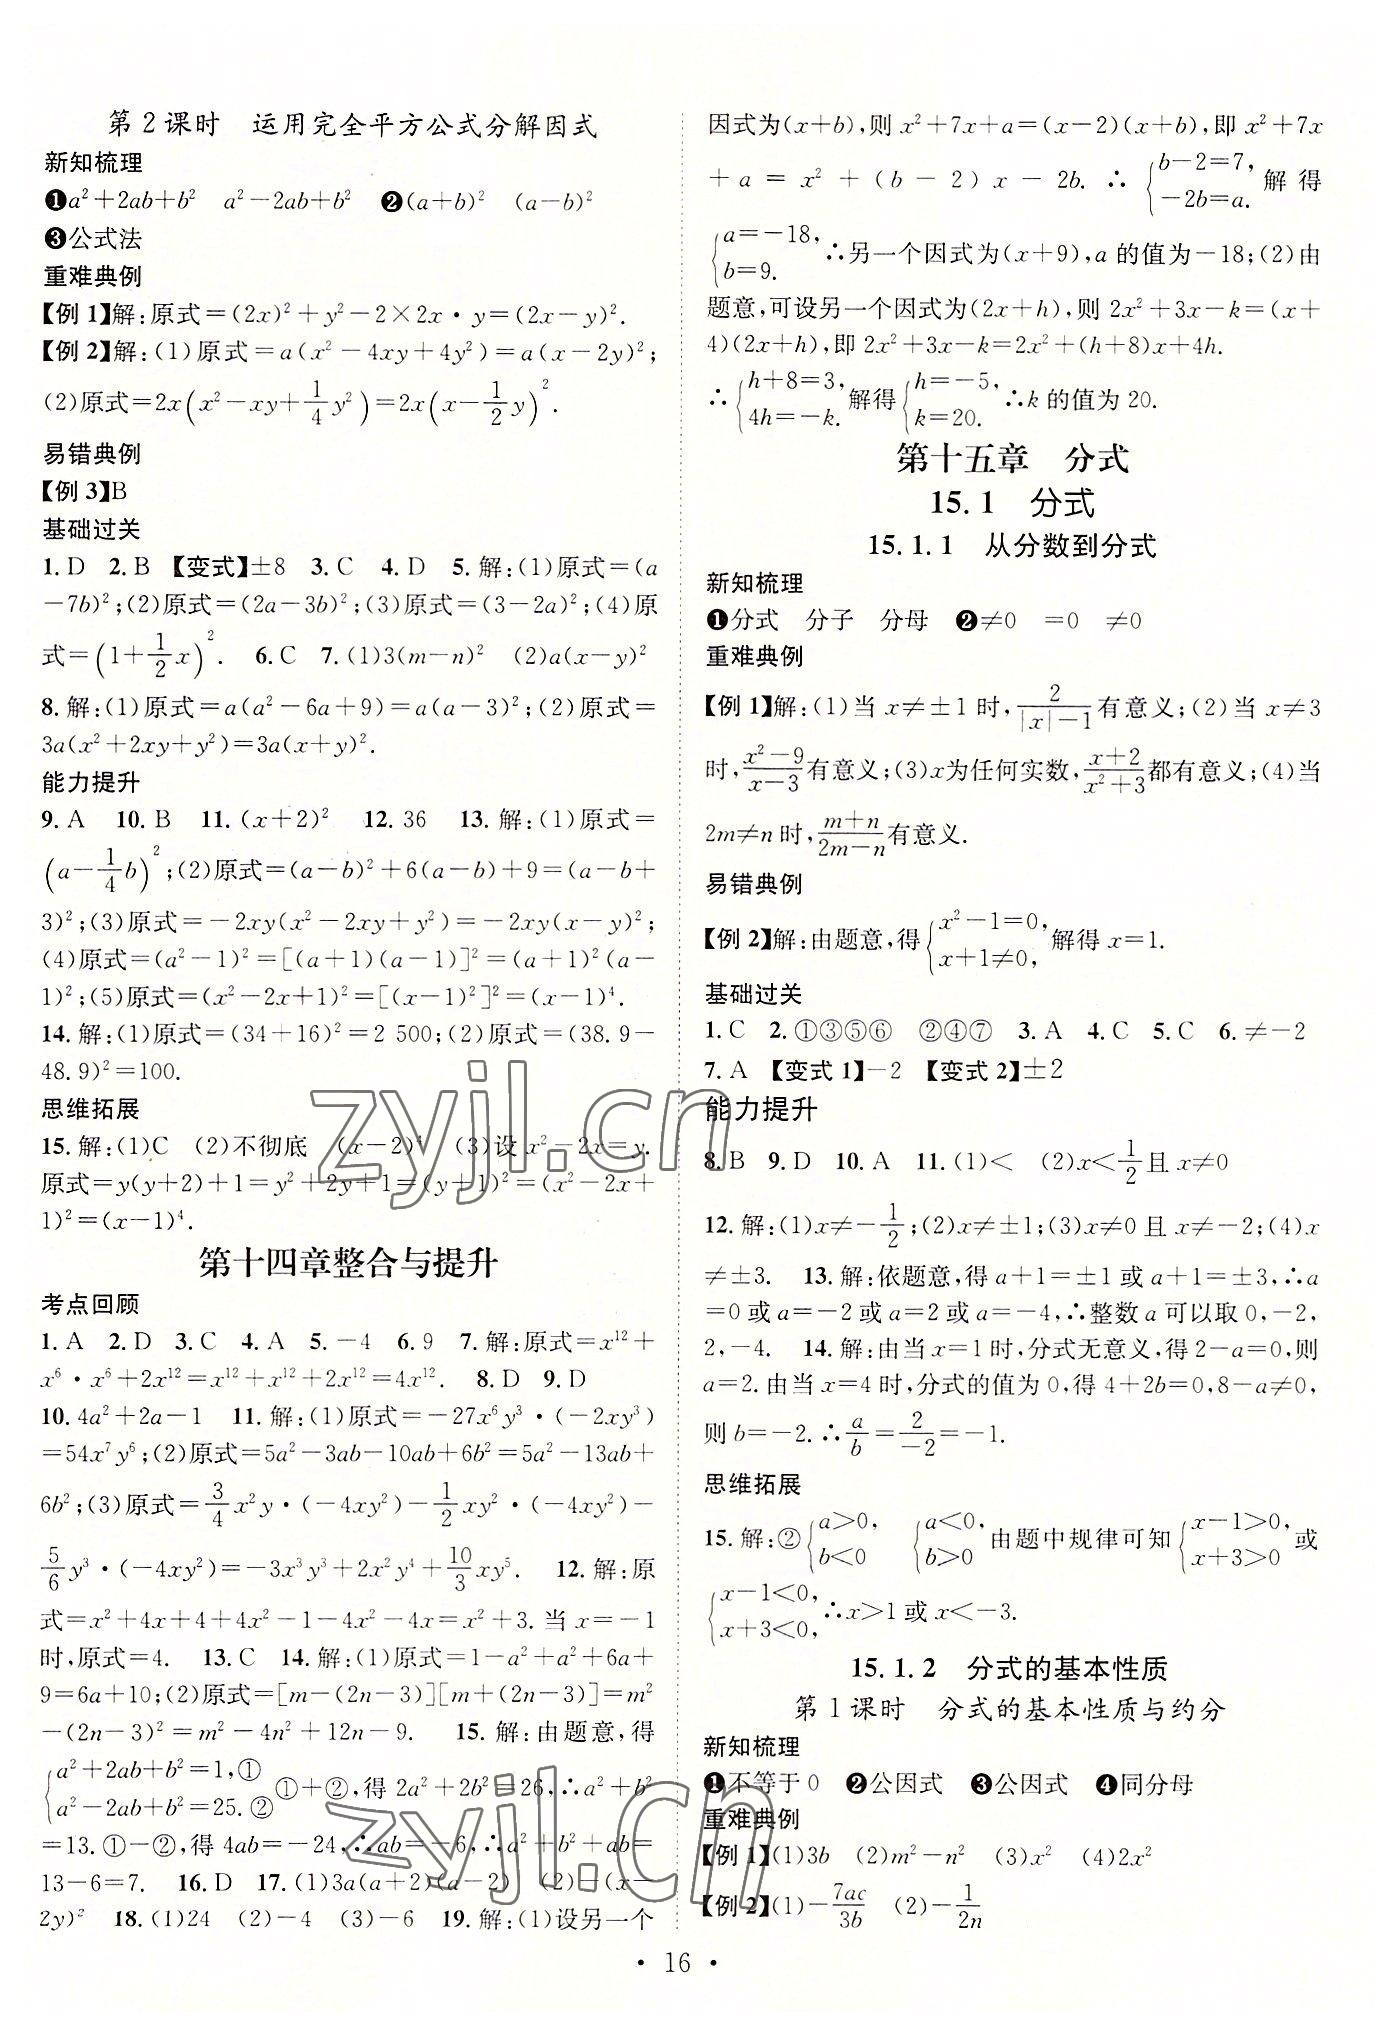 第2课时　运用完全平方公式分解因式
新知梳理
❶a²+2ab+b²　a²-2ab+b²　❷(a+b)²　(a-b)²
❸公式法
重难典例
【例1】解:原式=(2x)²+y²-2×2x·y=(2x-y)².
【例2】解:(1)原式=a(x²-4xy+4y²)=a(x-2y)²;
(2)原式=2x(x²-xy+1/4y²)=2x(x-1/2y)².
易错典例
【例3】B
基础过关
1.D　2.B　【变式】±8　3.C　4.D　5.解:(1)原式=(a
-7b)²;(2)原式=(2a-3b)²;(3)原式=(3-2a)²;(4)原
式=(1+1/2x)².　6.C　7.(1)3(m-n)²　(2)a(x-y)²
8.解:(1)原式=a(a²-6a+9)=a(a-3)²;(2)原式=
3a(x²+2xy+y²)=3a(x+y)².
能力提升
9.A　10.B　11.(x+2)²　12.36　13.解:(1)原式=
(a-1/4b)²;(2)原式=(a-b)²+6(a-b)+9=(a-b+
3)²;(3)原式=-2xy(x²-2xy+y²)=-2xy(x-y)²;
(4)原式=(a²-1)²=[(a+1)(a-1)]²=(a+1)²(a-
1)²;(5)原式=(x²-2x+1)²=[(x-1)²]²=(x-1)⁴.
14.解:(1)原式=(34+16)²=2 500;(2)原式=(38.9-
48.9)²=100.
思维拓展
15.解:(1)C　(2)不彻底　(x-2)⁴　(3)设x²-2x=y.
原式=y(y+2)+1=y²+2y+1=(y+1)²=(x²-2x+
1)²=(x-1)⁴.
第十四章整合与提升
考点回顾
1.A　2.D　3.C　4.A　5.-4　6.9　7.解:原式=x¹²+
x⁶·x⁶+2x¹²=x¹²+x¹²+2x¹²=4x¹².　8.D　9.D
10.4a²+2a-1　11.解:(1)原式=-27x⁶y³·(-2xy³)
=54x⁷y⁶;(2)原式=5a²-3ab-10ab+6b²=5a²-13ab+
6b²;(3)原式=3/4x²y·(-4xy²)-1/2xy²·(-4xy²)-
5/6y³·(-4xy²)=-3x³y³+2x²y⁴+10/3xy⁵.　12.解:原
式=x²+4x+4+4x²-1-4x²-4x=x²+3.当x=-1
时,原式=4.　13.C　14.解:(1)原式=1-a²+a²+6a+
9=6a+10;(2)原式=[m-(2n-3)][m+(2n-3)]=m²
-(2n-3)²=m²-4n²+12n-9.　15.解:由题意,得
{a²+2ab+b²=1,①
a²-2ab+b²=25.②　①+②,得2a²+2b²=26,∴a²+b²
=13.①-②,得4ab=-24,∴ab=-6,∴a²+b²+ab=
13-6=7.　16.D　17.(1)3a(a+2)(a-2)　(2)-(x-
2y)²　18.(1)24　(2)-4　(3)-6　19.解:(1)设另一个
因式为(x+b),则x²+7x+a=(x-2)(x+b),即x²+7x
+a=x²+(b-2)x-2b.∴{b-2=7,
-2b=a.　解得
{a=-18,
b=9.　∴另一个因式为(x+9),a的值为-18;(2)由
题意,可设另一个因式为(2x+h),则2x²+3x-k=(x+
4)(2x+h),即2x²+3x-k=2x²+(h+8)x+4h.
∴{h+8=3,
4h=-k.　解得{h=-5,
k=20.　∴k的值为20.
第十五章　分式
15.1　分式
15.1.1　从分数到分式
新知梳理
❶分式　分子　分母　❷≠0　=0　≠0
重难典例
【例1】解:(1)当x≠±1时,2/(|x|-1)有意义;(2)当x≠3
时,(x²-9)/(x-3)有意义;(3)x为任何实数,(x+2)/(x²+3)都有意义;(4)当
2m≠n时,(m+n)/(2m-n)有意义.
易错典例
【例2】解:由题意,得{x²-1=0,
x+1≠0,　解得x=1.
基础过关
1.C　2.①③⑤⑥　②④⑦　3.A　4.C　5.C　6.≠-2
7.A　【变式1】-2　【变式2】±2
能力提升
8.B　9.D　10.A　11.(1)<　(2)x<1/2且x≠0
12.解:(1)x≠-1/2;(2)x≠±1;(3)x≠0且x≠-2;(4)x
≠±3.　13.解:依题意,得a+1=±1或a+1=±3,∴a
=0或a=-2或a=2或a=-4,∴整数a可以取0,-2,
2,-4.　14.解:由当x=1时,分式无意义,得2-a=0,则
a=2.由当x=4时,分式的值为0,得4+2b=0,8-a≠0,
则b=-2.∴a/b=2/-2=-1.
思维拓展
15.解:②{a>0,
b<0　{a<0,
b>0　由题中规律可知{x-1>0,
x+3>0　或
{x-1<0,
x+3<0,　∴x>1或x<-3.
15.1.2　分式的基本性质
第1课时　分式的基本性质与约分
新知梳理
❶不等于0　❷公因式　❸公因式　❹同分母
重难典例
【例1】(1)3b　(2)m²-n²　(3)x²　(4)2x²
【例2】(1)-7ac/3b　(2)-1/2n
·16·
zyjl.cn
zyjl.cn